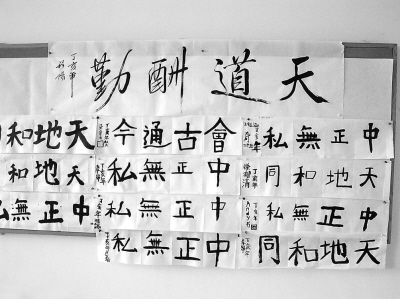 天道酬勤
丁亥年
中正無私
會古通今
天地和
天地和同
中正無私
天地和
中正無私
中正無私
中正無私
天地和同
中正無私